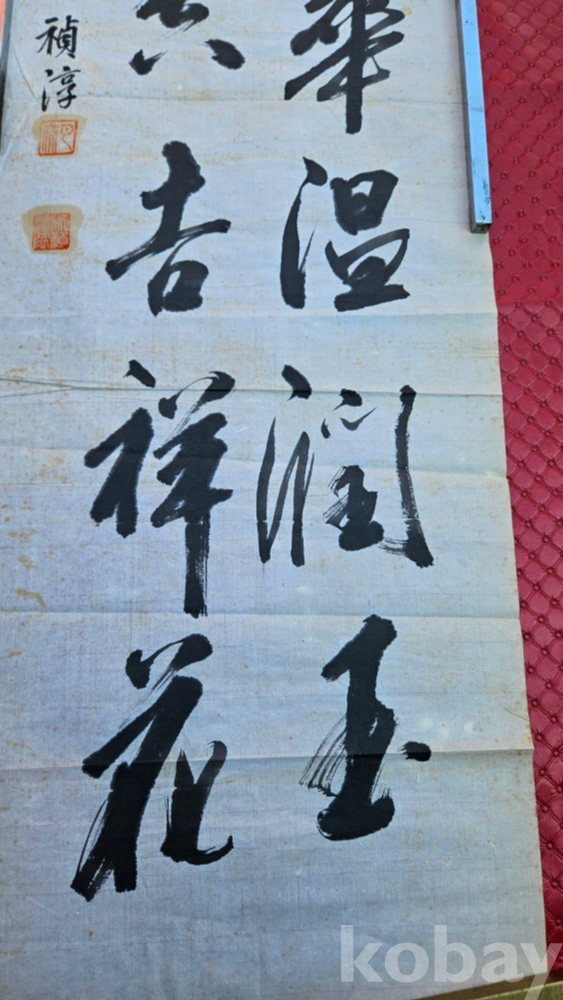 華温潤玉
吉祥花
禎淳
kobay